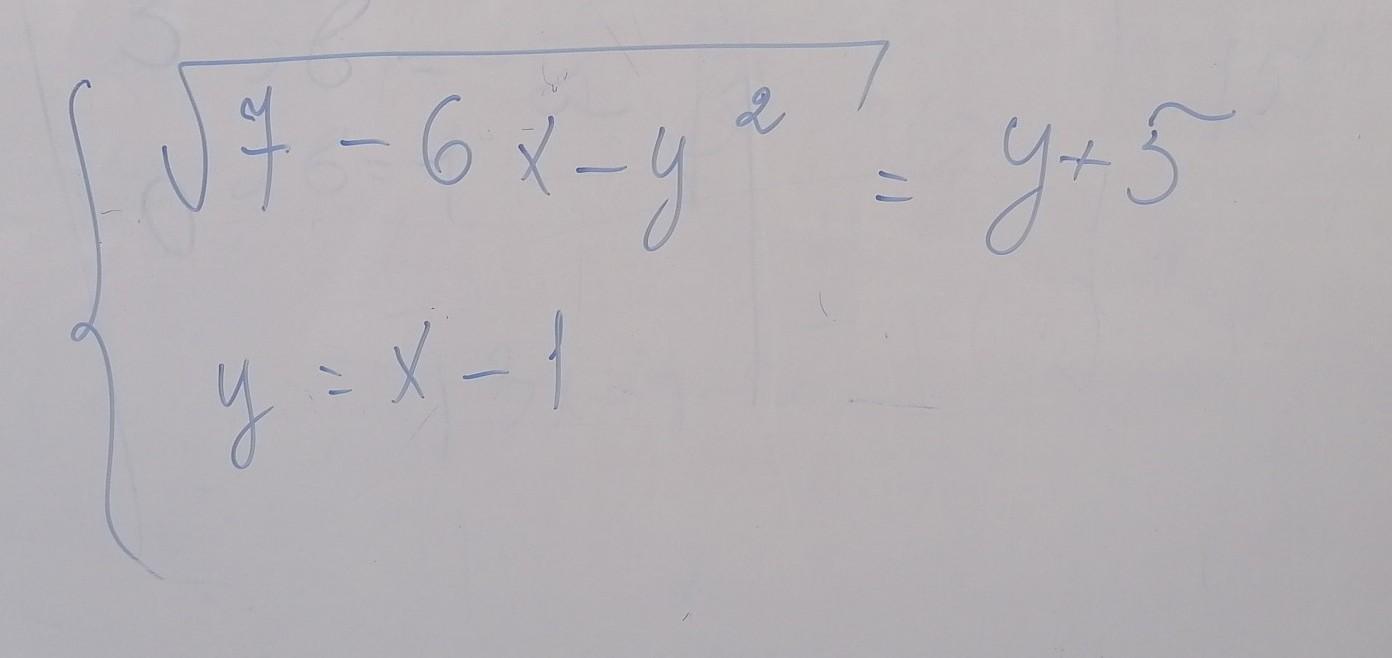 √7 - 6x - y² = y + 5
y = x - 1